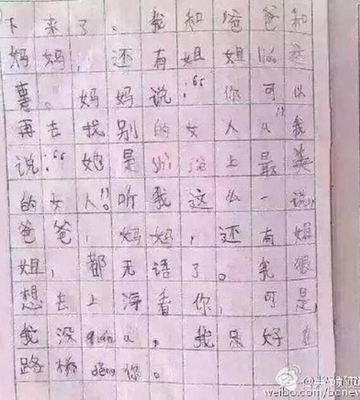 下来了。我和爸爸和
妈妈,还有姐姐
妈妈说:“你可以
再去找别的女人”我
说:“她是 上最美
的女人”。听我这么一说,
爸爸,妈妈,还有姐
姐,都无语了。我很
想去上海看你,可是,
我没 qian a,我只好在
路桥 deng 您。
weibo.com/bcnew